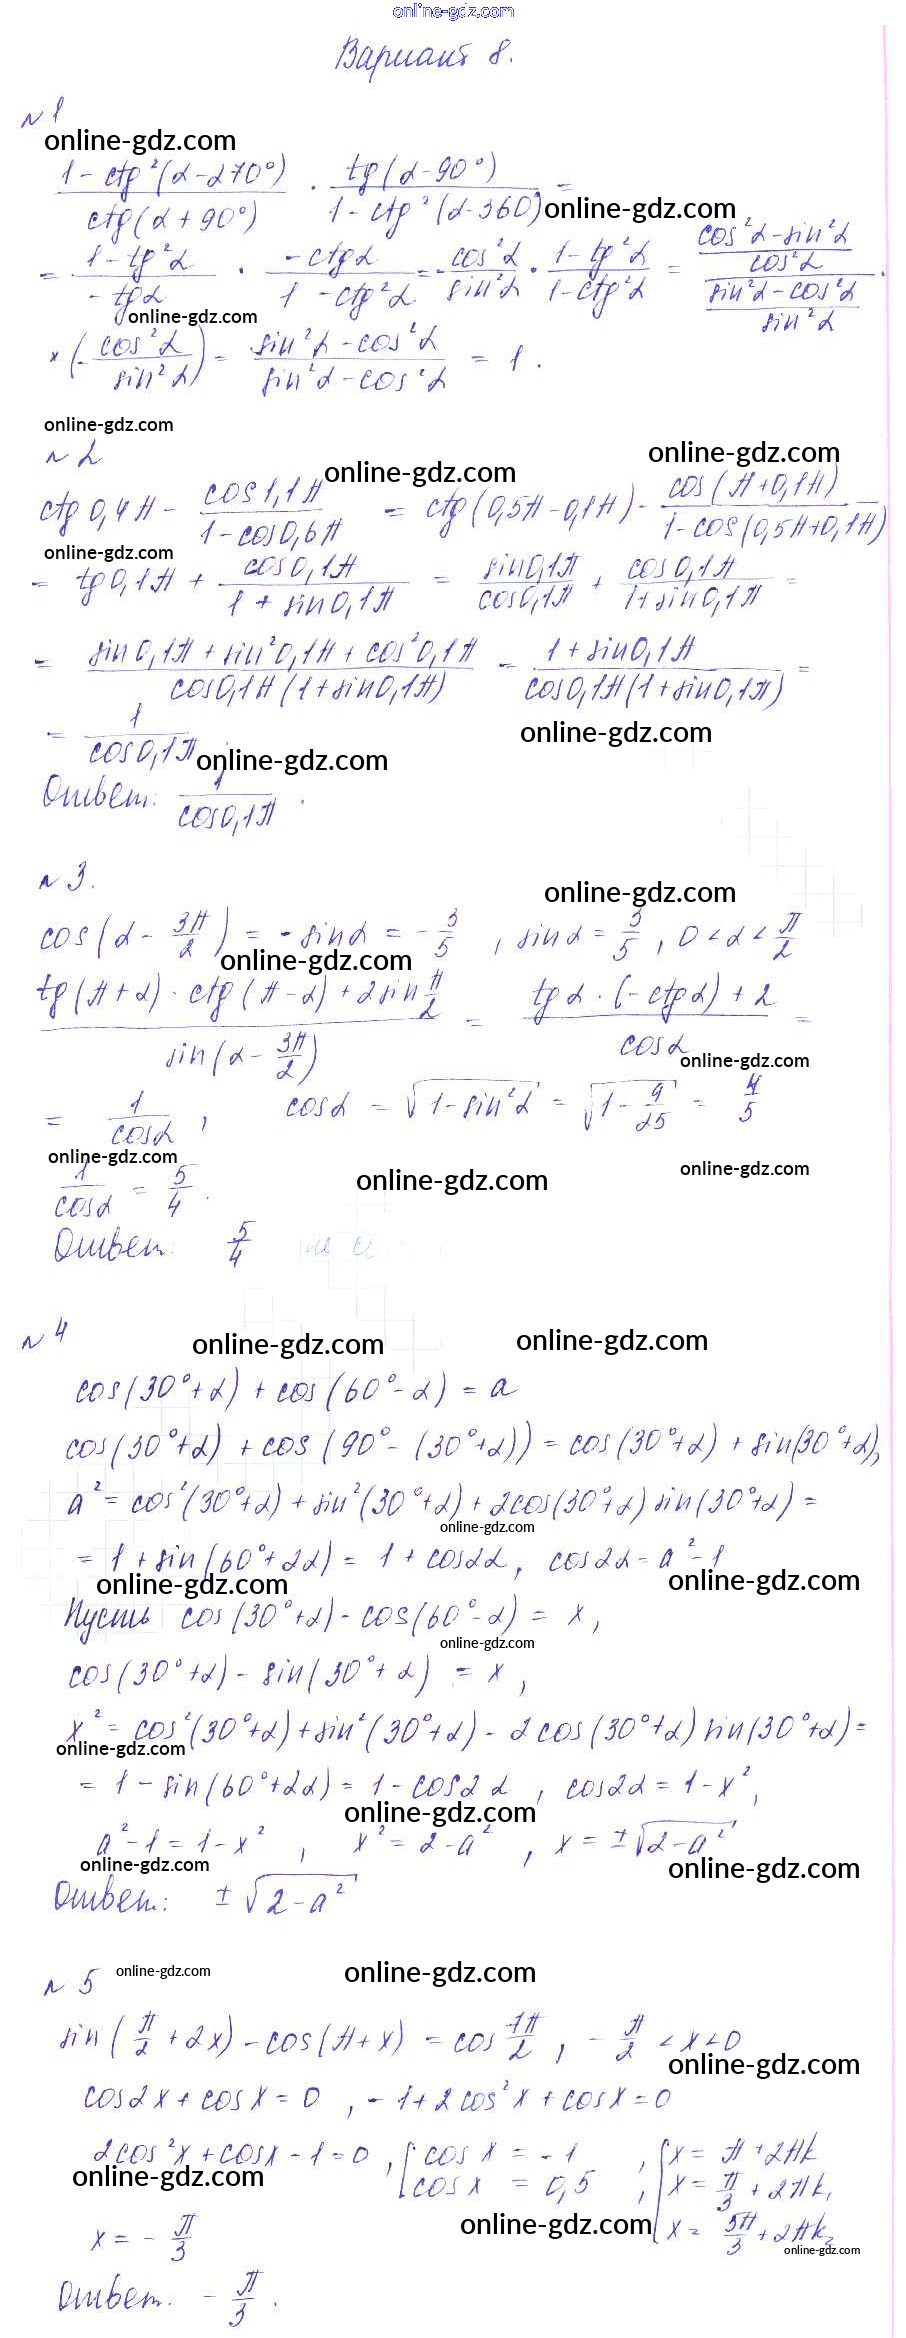 online-gdz.com
Вариант 8.
№1
online-gdz.com
(1 - ctg²(α-270°))/(ctg(α+90°)) · (tg(α-90°))/(1-ctg²(α-360)) =
online-gdz.com
= (1-tg²α)/(-tgα) · (-ctgα)/(1-ctg²α) = -(cos²α)/(sin²α) · (1-tg²α)/(1-ctg²α) = ((cos²α-sin²α)/(cos²α))/((sin²α-cos²α)/(sin²α)) ·
online-gdz.com
× (-(cos²α)/(sin²α)) = (sin²α-cos²α)/(sin²α-cos²α) = 1.
online-gdz.com
№2
online-gdz.com
online-gdz.com
ctg 0,4π - (cos1,1π)/(1-cos0,6π) = ctg(0,5π-0,1π) - (cos(π+0,1π))/(1-cos(0,5π+0,1π))
online-gdz.com
= tg0,1π + (cos0,1π)/(1+sin0,1π) = (sin0,1π)/(cos0,1π) + (cos0,1π)/(1+sin0,1π) =
= (sin0,1π+sin²0,1π+cos²0,1π)/(cos0,1π(1+sin0,1π)) = (1+sin0,1π)/(cos0,1π(1+sin0,1π)) =
online-gdz.com
= 1/(cos0,1π)
online-gdz.com
Ответ: 1/(cos0,1π).
№3.
online-gdz.com
cos(α - 3π/2) = -sinα = -3/5, sinα = 3/5, 0<α<π/2
online-gdz.com
(tg(π+α)·ctg(π-α)+2sin π/2)/(sin(α-3π/2)) = (tgα·(-ctgα)+2)/(cosα) =
online-gdz.com
= 1/(cosα), cosα = √(1-sin²α) = √(1-9/25) = 4/5
online-gdz.com
online-gdz.com
online-gdz.com
1/(cosα) = 5/4.
Ответ: 5/4
№4
online-gdz.com
online-gdz.com
cos(30°+α)+cos(60°-α)=a
cos(30°+α)+cos(90°-(30°+α))=cos(30°+α)+sin(30°+α),
a²=cos²(30°+α)+sin²(30°+α)+2cos(30°+α)sin(30°+α)=
online-gdz.com
=1+sin(60°+2α)=1+cos2α, cos2α=a²-1
online-gdz.com
online-gdz.com
Пусть cos(30°+α)-cos(60°-α)=x,
online-gdz.com
cos(30°+α)-sin(30°+α)=x,
x²=cos²(30°+α)+sin²(30°+α)-2cos(30°+α)sin(30°+α)=
online-gdz.com
=1-sin(60°+2α)=1-cos2α, cos2α=1-x²,
online-gdz.com
a²-1=1-x², x²=2-a², x=±√(2-a²)
online-gdz.com
online-gdz.com
Ответ: ±√(2-a²)
№5
online-gdz.com
online-gdz.com
sin(π/2+2x)-cos(π+x)=cos 7π/2, -π/2<x<0
online-gdz.com
cos2x+cosx=0, -1+2cos²x+cosx=0
2cos²x+cosx-1=0, [cosx=-1 cosx=0,5, [x=π+2πk x=π/3+2πk₁ x=5π/3+2πk₂
online-gdz.com
online-gdz.com
online-gdz.com
x=-π/3
Ответ. -π/3.